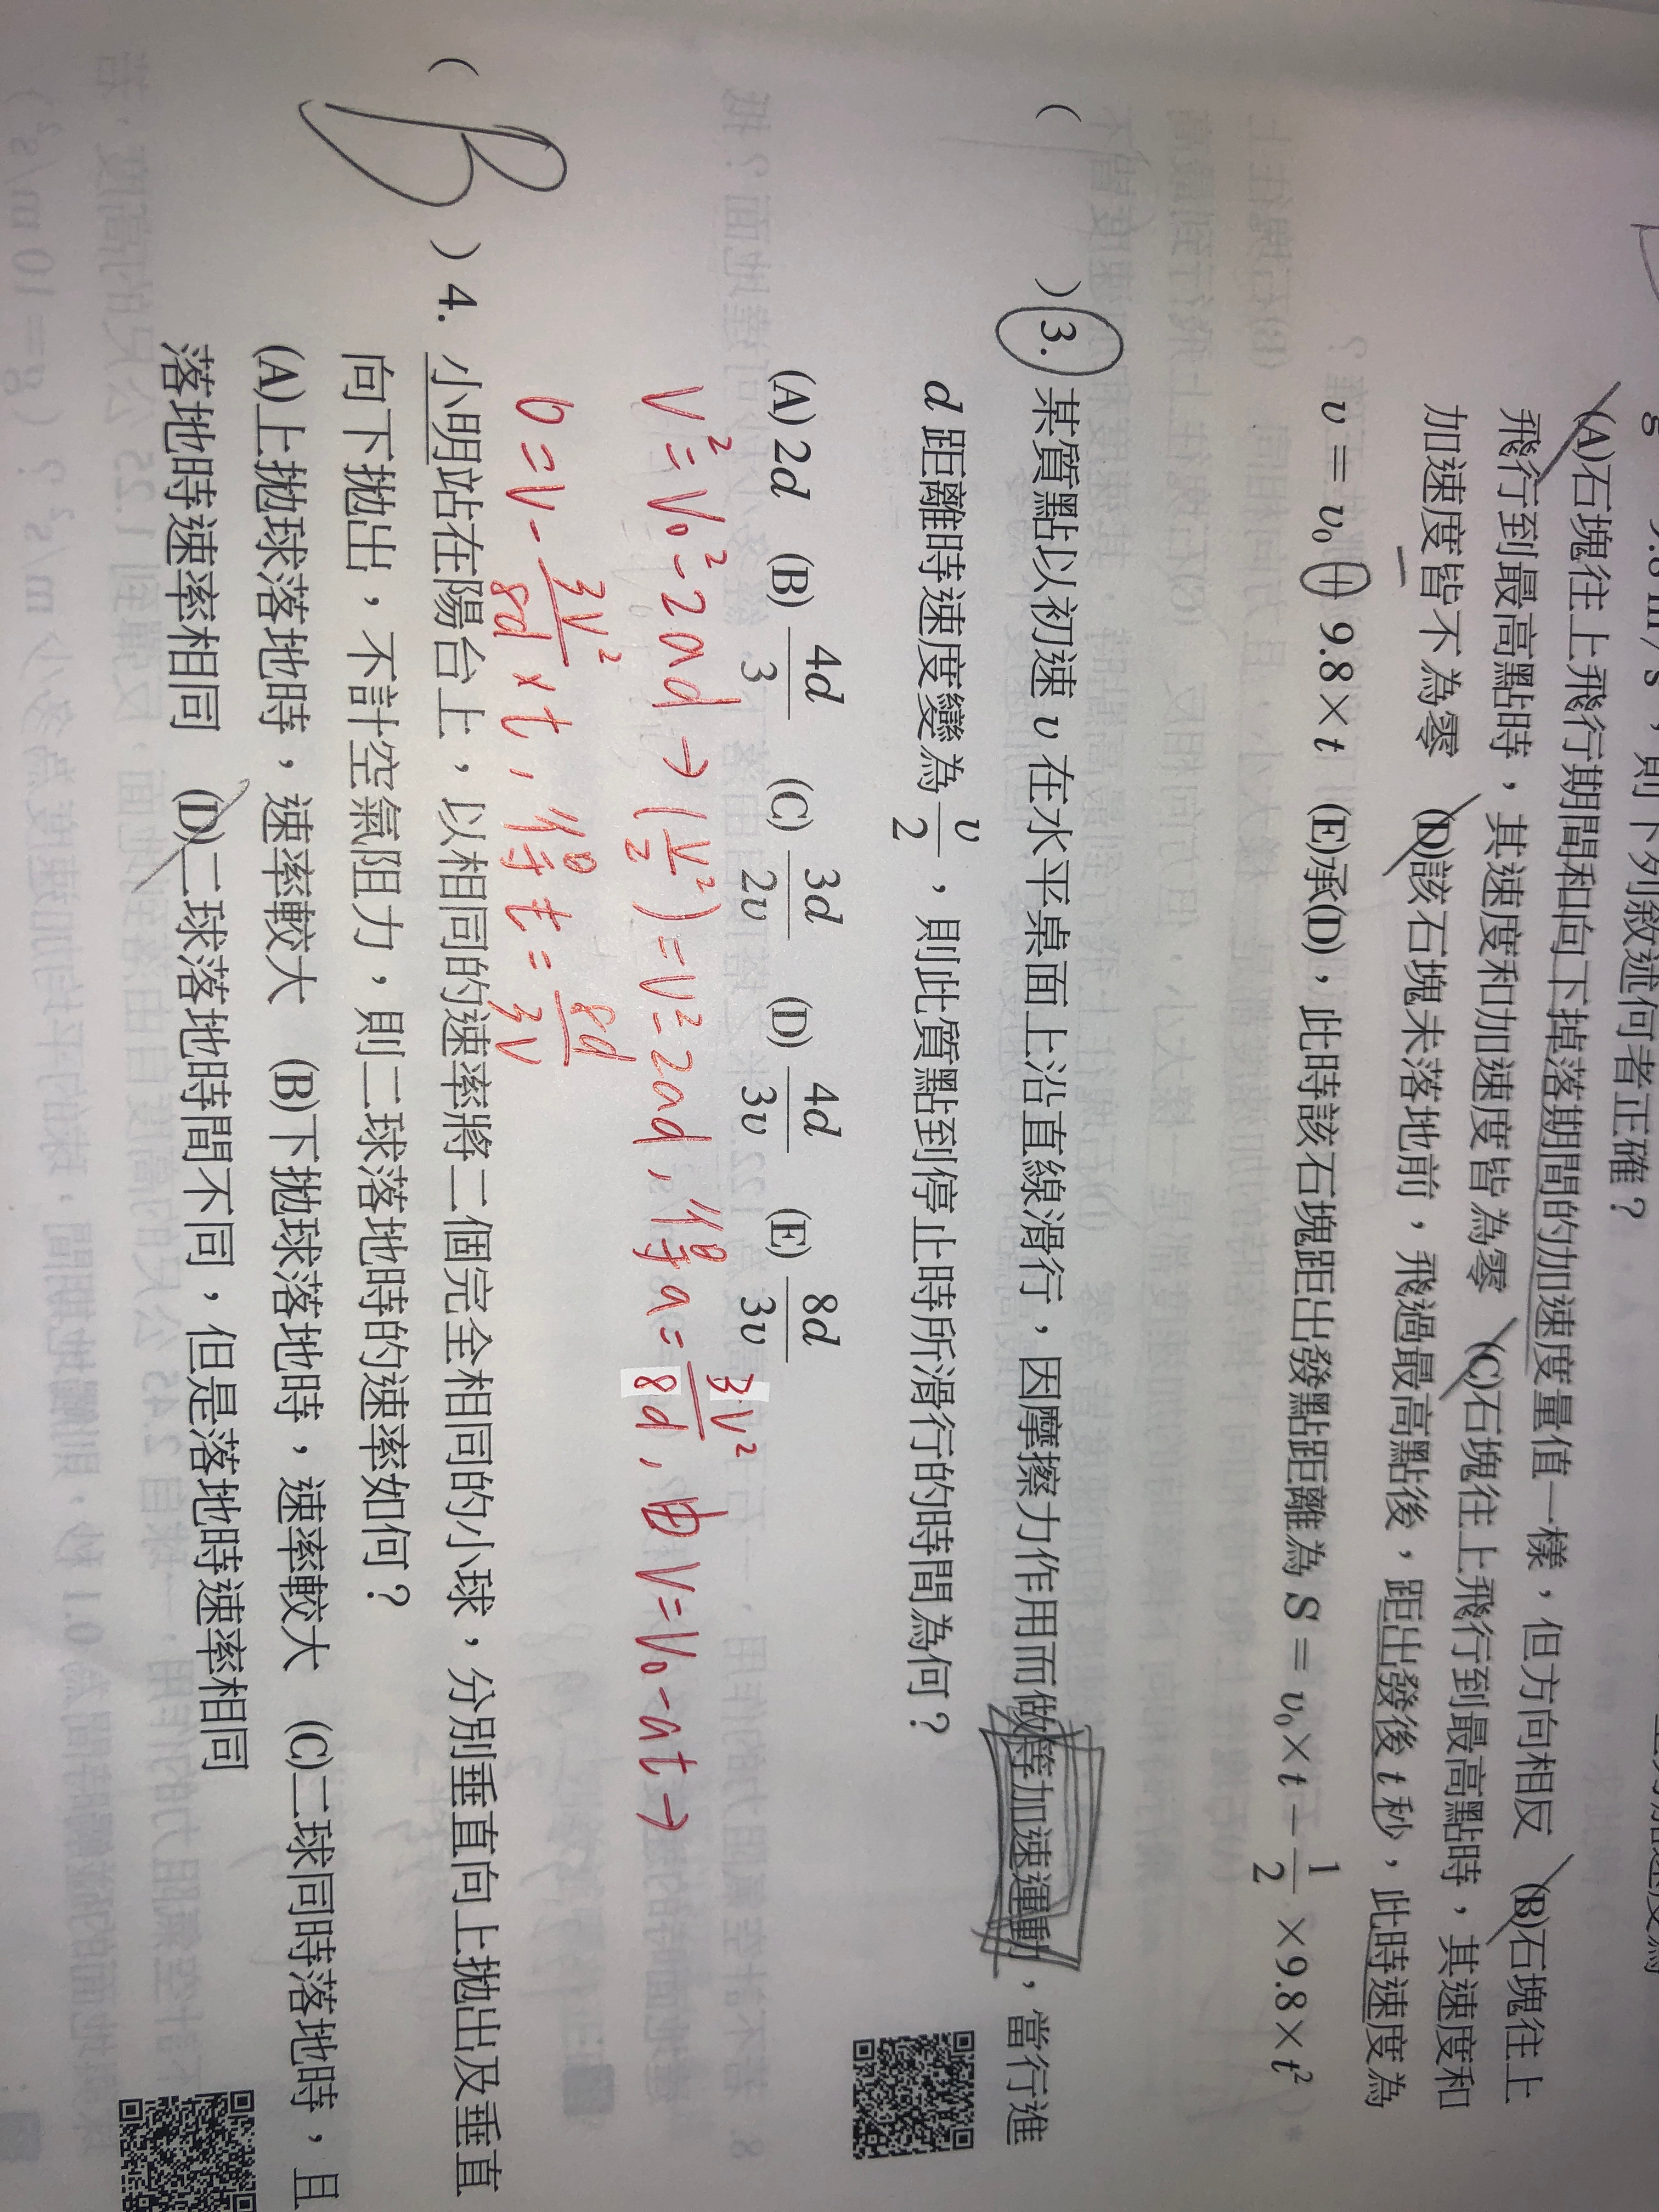 ，則下列敘述何者正確？
(A)石塊往上飛行期間和向下掉落期間的加速度量值一樣，但方向相反 (B)石塊往上
飛行到最高點時，其速度和加速度皆為零 (C)石塊往上飛行到最高點時，其速度和
加速度皆不為零 (D)該石塊未落地前，飛過最高點後，距出發後 t 秒，此時速度為
v = v₀ + 9.8×t (E)承(D)，此時該石塊距出發點距離為 S = v₀×t − 1/2 ×9.8×t²
( )3. 某質點以初速 v 在水平桌面上沿直線滑行，因摩擦力作用而做等加速運動，當行進
d 距離時速度變為 v/2，則此質點到停止時所滑行的時間為何？
(A) 2d (B) 4d/3 (C) 3d/2v (D) 4d/3v (E) 8d/3v
V² = V₀² - 2ad → (V/2²) = V² - 2ad, 得 a = 3V²/8d, 由 V = V₀ - at →
0 = V - 3V²/8d × t, 得 t = 8d/3V
( B )4. 小明站在陽台上，以相同的速率將二個完全相同的小球，分別垂直向上拋出及垂直
向下拋出，不計空氣阻力，則二球落地時的速率如何？
(A)上拋球落地時，速率較大 (B)下拋球落地時，速率較大 (C)二球同時落地時，且
落地時速率相同 (D)二球落地時間不同，但是落地時速率相同